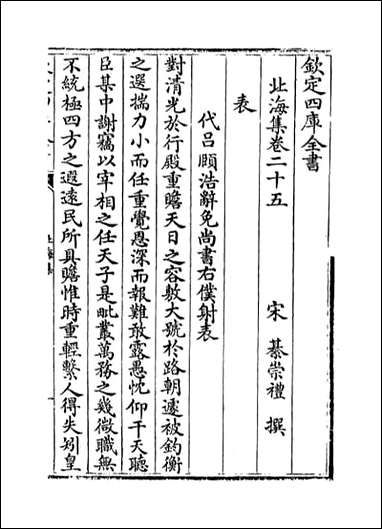 欽定四庫全書
北海集卷二十五
宋 綦崇禮 撰
表
代呂頤浩辭免尚書右僕射表
對清光於行殿重瞻天日之容敷大號於路朝遽被鈞衡
之選揣力小而任重覺恩深而報難敢露愚忱仰干天聽
臣某中謝竊以宰相之任天子是毗叢萬務之幾微職無
不統極四方之遐遠民所具瞻惟時重輕繫人得失矧皇